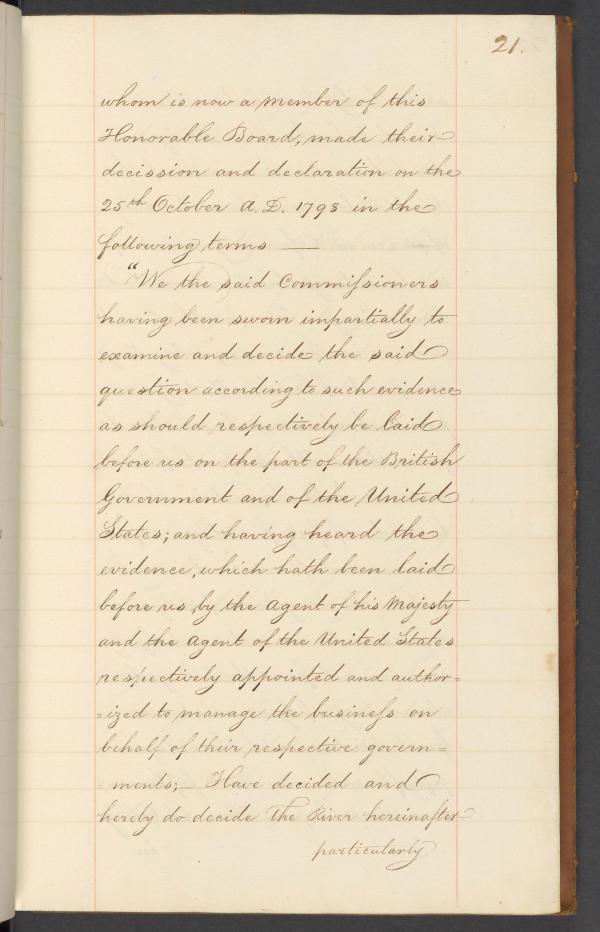 21.
whom is now a member of this
Honorable Board, made their
decission and declaration on the
25th October A.D. 1798 in the
following terms —
"We the said Commissioners
having been sworn impartially to
examine and decide the said
question according to such evidence
as should respectively be laid
before us on the part of the British
Government and of the United
States; and having heard the
evidence, which hath been laid
before us by the Agent of his Majesty
and the Agent of the United States
respectively appointed and author=
=ized to manage the business on
behalf of their respective govern=
=ments;— Have decided and
hereby do decide The River hereinafter
particularly